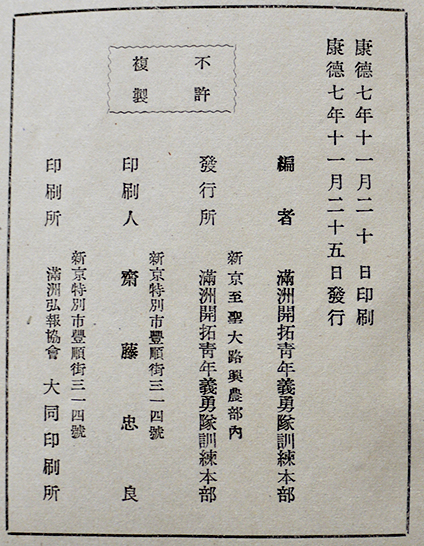 康德七年十一月二十日印刷
康德七年十一月二十五日發行
編者 滿洲開拓靑年義勇隊訓練本部
新京至聖大路興農部內
發行所 滿洲開拓靑年義勇隊訓練本部
不許
複製
新京特別市豐順街三一四號
印刷人 齋藤忠良
新京特別市豐順街三一四號
印刷所 滿洲弘報協會 大同印刷所